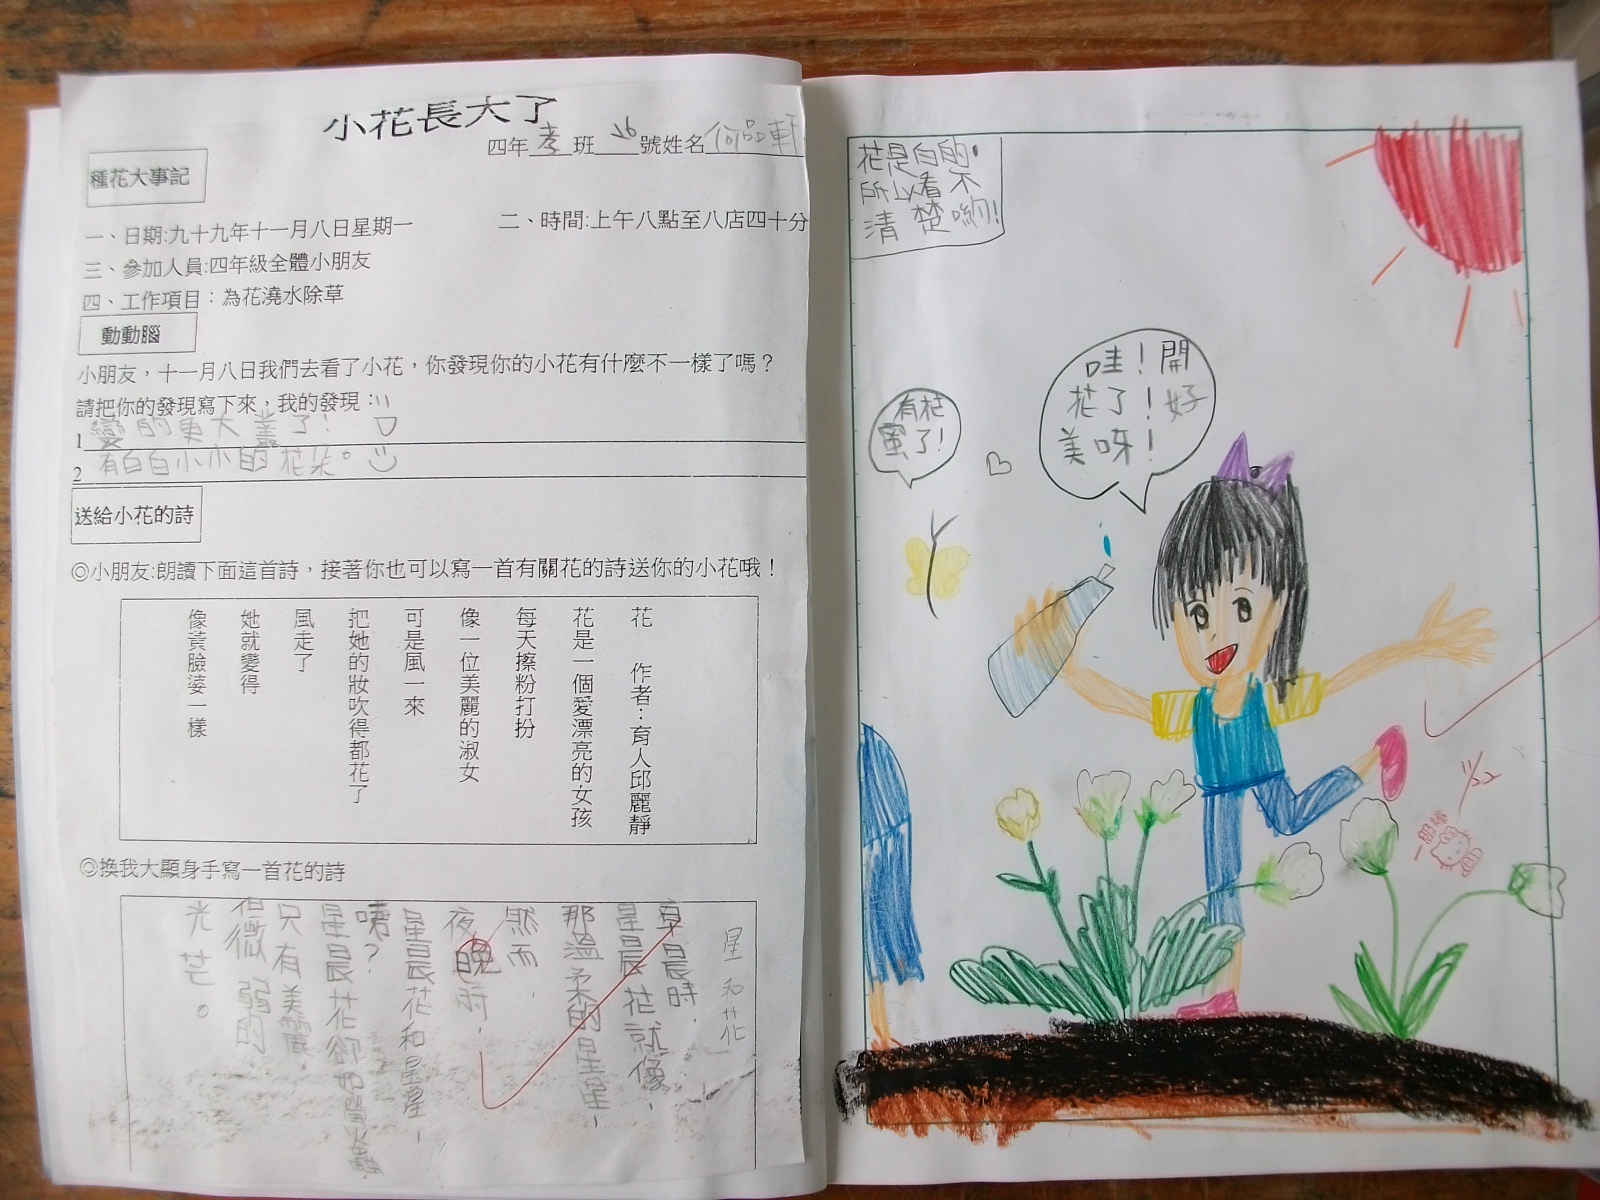 小花長大了
四年孝班26號姓名何品軒
種花大事記
一、日期:九十九年十一月八日星期一
二、時間:上午八點至八店四十分
三、參加人員:四年級全體小朋友
四、工作項目：為花澆水除草
動動腦
小朋友，十一月八日我們去看了小花，你發現你的小花有什麼不一樣了嗎？
請把你的發現寫下來，我的發現：
1 變的更大叢了！
2 有白白小小的花朵。
送給小花的詩
◎小朋友:朗讀下面這首詩，接著你也可以寫一首有關花的詩送你的小花哦！
花 作者：育人邱麗靜
花是一個愛漂亮的女孩
每天擦粉打扮
像一位美麗的淑女
可是風一來
把她的妝吹得都花了
風走了
她就變得
像黃臉婆一樣
◎換我大顯身手寫一首花的詩
星和花
早晨時，
星晨花就像，
那溫柔的星星，
然而，
夜晚時，
星晨花和星星，
咦？
星晨花卻如螢火蟲
只有美麗，
但微弱的
光芒。
花是白的，
所以看不
清楚喲！
哇！開
花了！好
美呀！
有花
蜜了！
11/22